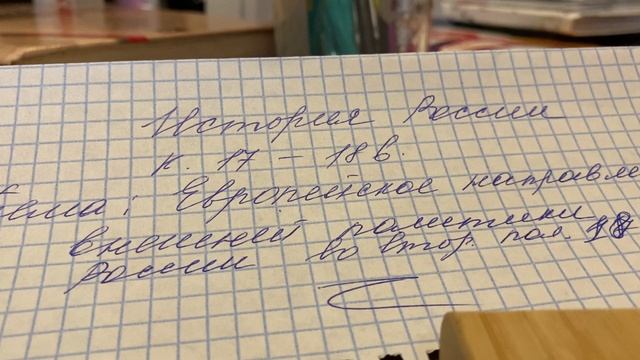 История России
к. 17 - 18 в.
Тема: Европейское направле
внешней политики
России во втор. пол. 18